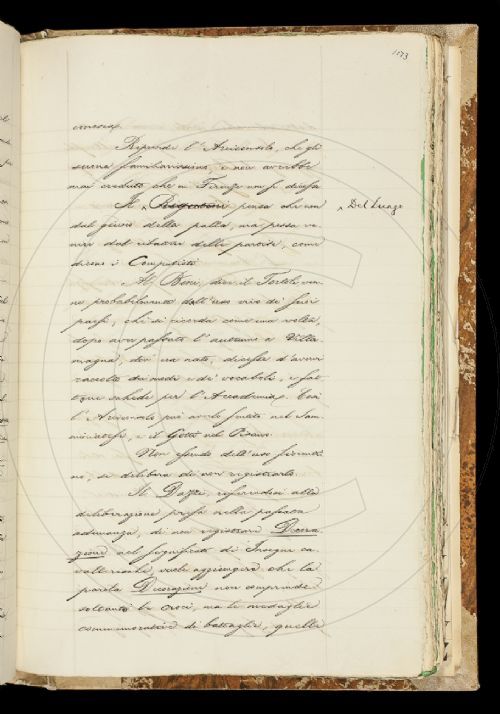 1173
Risponde l'Arciconsolo, che gli
suona familiarissimo, e non avrebbe
mai creduto che a Firenze non si dicesse
Il Rigutini pensa che non
Del Lungo
dal giuoco della palla, ma possa ve-
nire dal ributto delle partite, come
dicono i Computisti
Al Bene, dice il Tortoli, ven-
ne probabilmente dall'uso vivo di suoi
paesi, chè si ricorda come una volta,
dopo aver passato l'autunno a Villa-
magna, dov'era nato, dicesse d'avere
raccolto dei modi e de' vocaboli, e fat-
tone schede per l'Accademia. Così
l'Arciconsolo può averlo sentito nel Sam-
miniatese, e il Gotti nel Pisano.
Non essendo dell'uso fiorenti-
no, si delibera di non registrarlo.
Il Dazzi, riferendosi alla
deliberazione presa nella passata
adunanza, di non registrare Decora-
zione nel significato di Insegne ca-
valleresche, vuole aggiungere che la
parola Decorazione non comprende
soltanto le croci, ma le medaglie
commemorative di battaglie, quelle